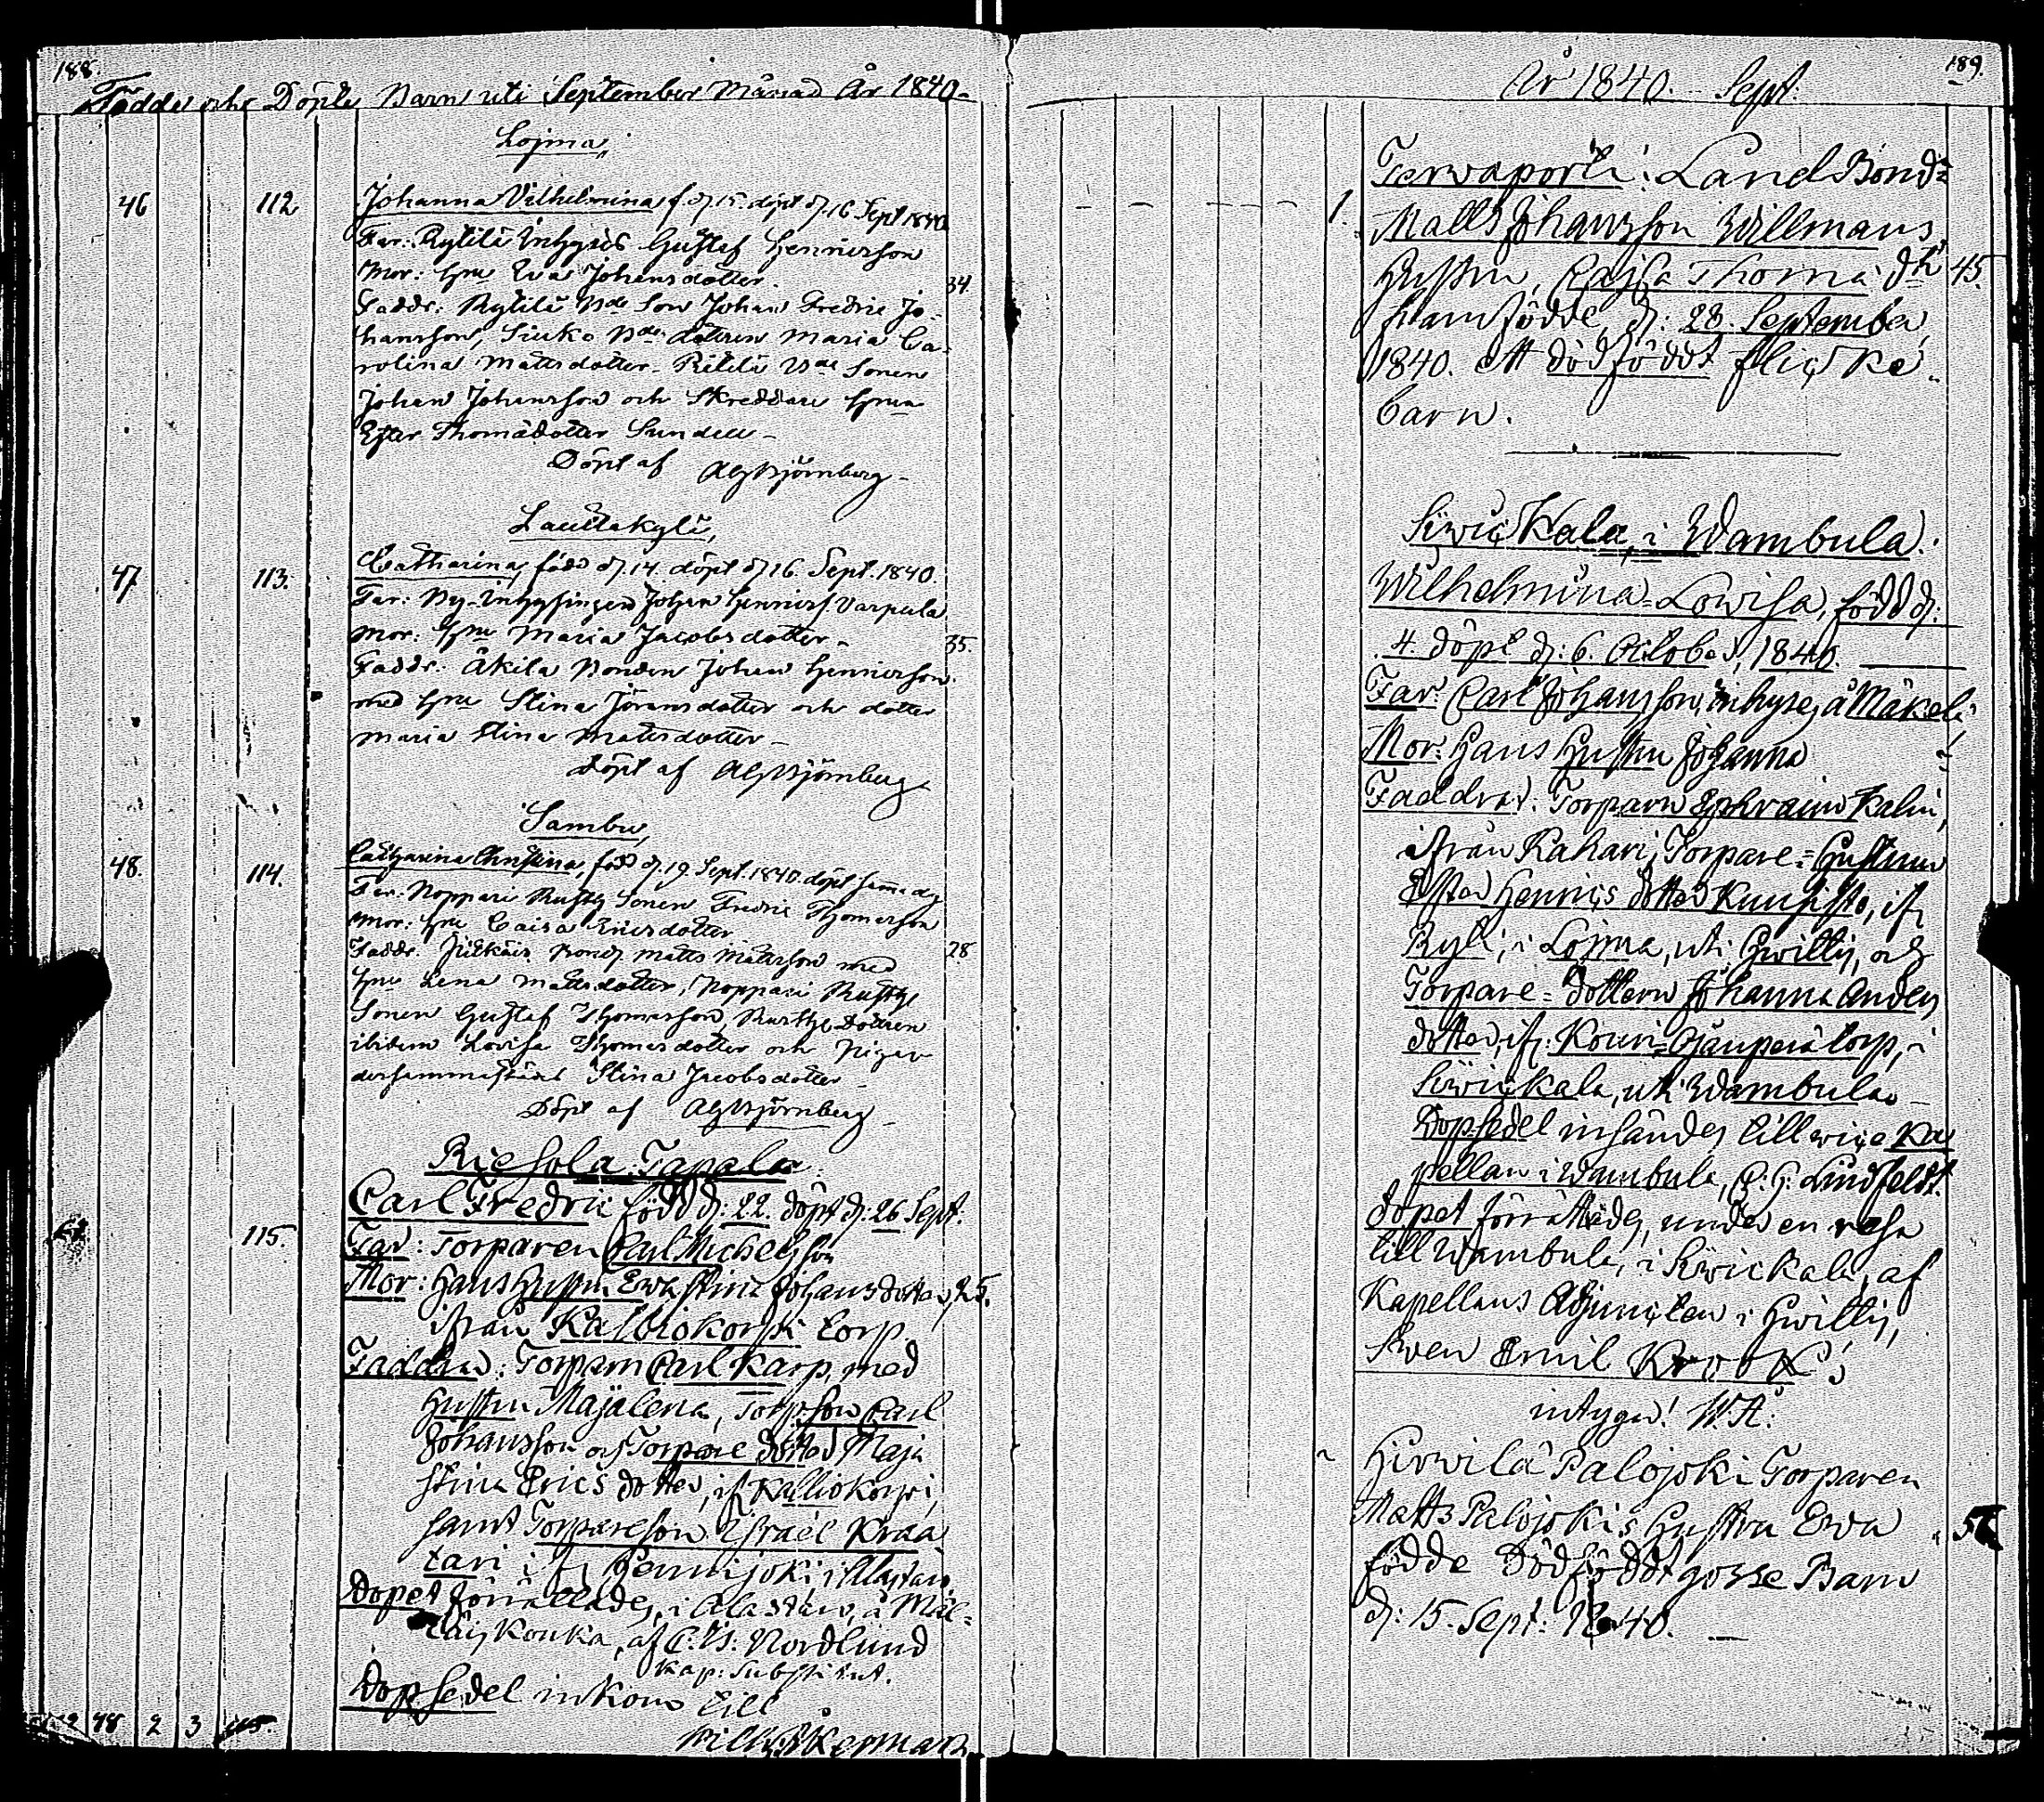 188.
Födde och Döpte Barn uti September Månad År 1840.
Lojma,
46 112 Johanna Vilhelmina, f. d. 15. döpt d. 16 Sept 1840
Far: Rytilä Inhyses Gustaf Henricsson
Mor: Hu Eva Johansdotter. 34.
Faddr: Rytilä Bde Son Johan Fredric Jo-
hansson, Bde dottren Maria Ca-
rolina Mattsdotter - Rätilä Bde Sonen
Johan Johansson och Skreddare
Ester Thomadotter Sundell -
Döpt af AGBjörnberg -
Lauttakylä,
47 113. Catharina, född d. 14. döpt d. 16. Sept. 1840.
Far: By-Inhysingen Johan Henricss. Varpula
Mor: Hu Maria Jacobsdotter - 35.
Faddr: Äkilä Bonden Johan Henricsson
med Hu Stina Jöransdotter och dotter
Maria Stina Mattsdotter -
Döpt af AGBjörnberg
Sambu,
48. 114. Catharina Christina, född d. 19. Sept. 1840. döpt samma dag
Far: Noppari Rusth. Sonen Fredric Thomasson
Mor: Hu Caisa Ericsdotter 28
Faddr. Bond. Matts Mattsson med
Hu Lena Mattsdotter, Noppari Rusth.
Sonen Gustaf Thomasson, Rusth. Dottren
ibidem Lovisa Thomasdotter och Pigan
dersammastädes Stina Jacobsdotter -
Döpt af AGBjörnberg -
Riesola: Tapala
Carl Fredric född d: 22. döpt d: 26 Sept.
115. Far: Torparen Carl Michelsson
Mor: Hans Hustru Ewa Stina Johansdotter, 25.
ifrån Kalliokorpi torp.
Faddrar: Torparn Carl Karp, med
Hustru Majalena, Torp:son Carl
Johansson och Torpare dotter Maja
Stina Ericsdotter, ifr. Kalliokorpi,
samt Torpareson Israël Kraa
tari ifr. Pennijoki, i Alastaro.
Dopet förrättades, i Alastaro, å Mäl-
Kouka, af C. Nordlund
Kap: Substitut.
Dopsedel inkom till
Wilh. Åkerman
48 2 3 115.
189.
År 1840. Sept.
Terwaporti: Land Bond:
1. Matts Johansson Willmans
Hustru, Cajsa Thomä dtr 45.
framfödde, d: 28. September,
1840. ett dödfödt flicke-
barn.
Siwickala, i Wambula.
Wilhelmina-Lowisa, född d:
4. döpt d: 6. October, 1840.
Far: Carl Johansson, inhyses å Mäkelä,
Mor: Hans Hustru Johanna
Faddrar. Torparn Ephraim Kalin,
ifrån Rahari, Torpare-Hustrun
Ester Henricsdotter Kuusisto, ifr.
Kylä, i Lojma, uti Hwittis, och
Torpare-dottern Johanna Anders
dotter, ifr. Kouri torp, i
Siwickala, uti Wambula
Dopsedel insändes till vice Ka
pellan i Wambula, C: G: Lindfeldt.
Dopet förrättades, under en resa
till Wambula, i Siwickala, af
Kapellans Adjuncten i Hwittis,
Swen Emil Krook;
intygar! W. Å:
Hirwilä Palojoki Torparen
Matts Palojokis Hustru Ewa
födde Dödfödt gosse Barn
d: 15. Sept: 1840.